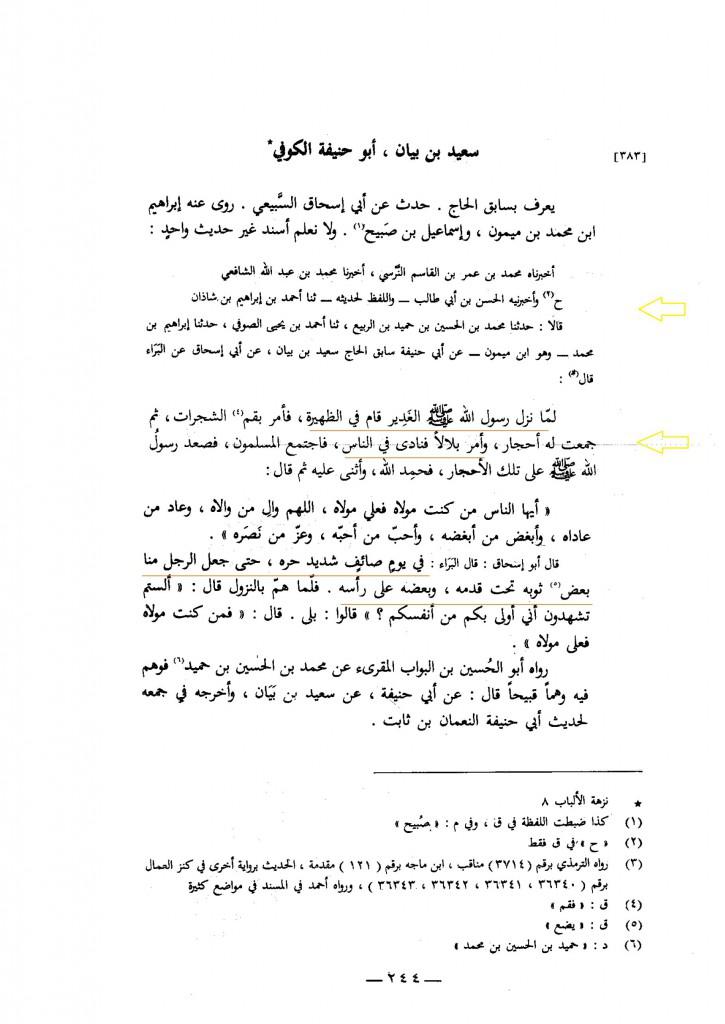 سعيد بن بيان ، أبو حنيفة الكوفي*
[٣٨٣]
يعرف بسابق الحاج . حدث عن أبي إسحاق السَّبيعي . روى عنه إبراهيم
ابن محمد بن ميمون ، وإسماعيل بن صَبيح(١) . ولا نعلم أسند غير حديث واحدٍ :
أخبرناه محمد بن عمر بن القاسم النَّرسي ، أخبرنا محمد بن عبد الله الشافعي
ح(٢) وأخبرنيه الحسن بن أبي طالب ــ واللفظ لحديثه ــ ثنا أحمد بن إبراهيم بن شاذان
قالا : حدثنا محمد بن الحسين بن حميد بن الربيع ، ثنا أحمد بن يحيى الصوفي ، حدثنا إبراهيم بن
محمد ــ وهو ابن ميمون ــ عن أبي حنيفة سابق الحاج سعيد بن بيان ، عن أبي إسحاق عن البَرَاء
قال(٣) :
لمّا نزل رسول الله ﷺ الغَدِير قام في الظهيرة، فأمر بقم(٤) الشجرات ، ثم
جمعت له أحجار ، وأمر بلالاً فنادى في الناس ، فاجتمع المسلمون ، فصعد رسولُ
الله ﷺ على تلك الأحجار ، فحمِد الله، وأثنى عليه ثم قال :
« أيها الناس من كنت مولاه فعلي مولاه ، اللهم والِ من والاه ، وعاد من
عاداه ، وأبغض من أبغضه ، وأحبّ من أحبّه ، وعزّ من نَصَره » .
قال أبو إسحاق : قال البَرَاء : في يومٍ صائفٍ شديد حره ، حتى جعل الرجل منا
بعض(٥) ثوبه تحت قدمه ، وبعضه على رأسه . فلّما همّ بالنزول قال : « ألستم
تشهدون أني أولى بكم من أنفسكم ؟ » قالوا : بلى . قال : « فمن كنت مولاه
فعلي مولاه » .
رواه أبو الحُسين بن البواب المقرىء عن محمد بن الحُسين بن حميد(٦) فوهم
فيه وهماً قبيحاً قال : عن أبي حنيفة ، عن سعيد بن بَيَان ، وأخرجه في جمعه
لحديث أبي حنيفة النعمان بن ثابت .
* نزهة الألباب ٨
(١) كذا ضبطت اللفظة في ق ، وفي م : « صُبيح »
(٢) « ح » في ق فقط
(٣) رواه الترمذي برقم (٣٧١٤) مناقب ، ابن ماجه برقم (١٢١) مقدمة ، الحديث برواية أخرى في كنز العمال
برقم (٣٦٣٤٠ ، ٣٦٣٤١ ، ٣٦٣٤٢ ، ٣٦٣٤٣) ، ورواه أحمد في المسند في مواضع كثيرة
(٤) ق : « فقم »
(٥) ق : « يضع »
(٦) د : « حميد بن الحسين بن محمد »
ــ ٢٤٤ ــ